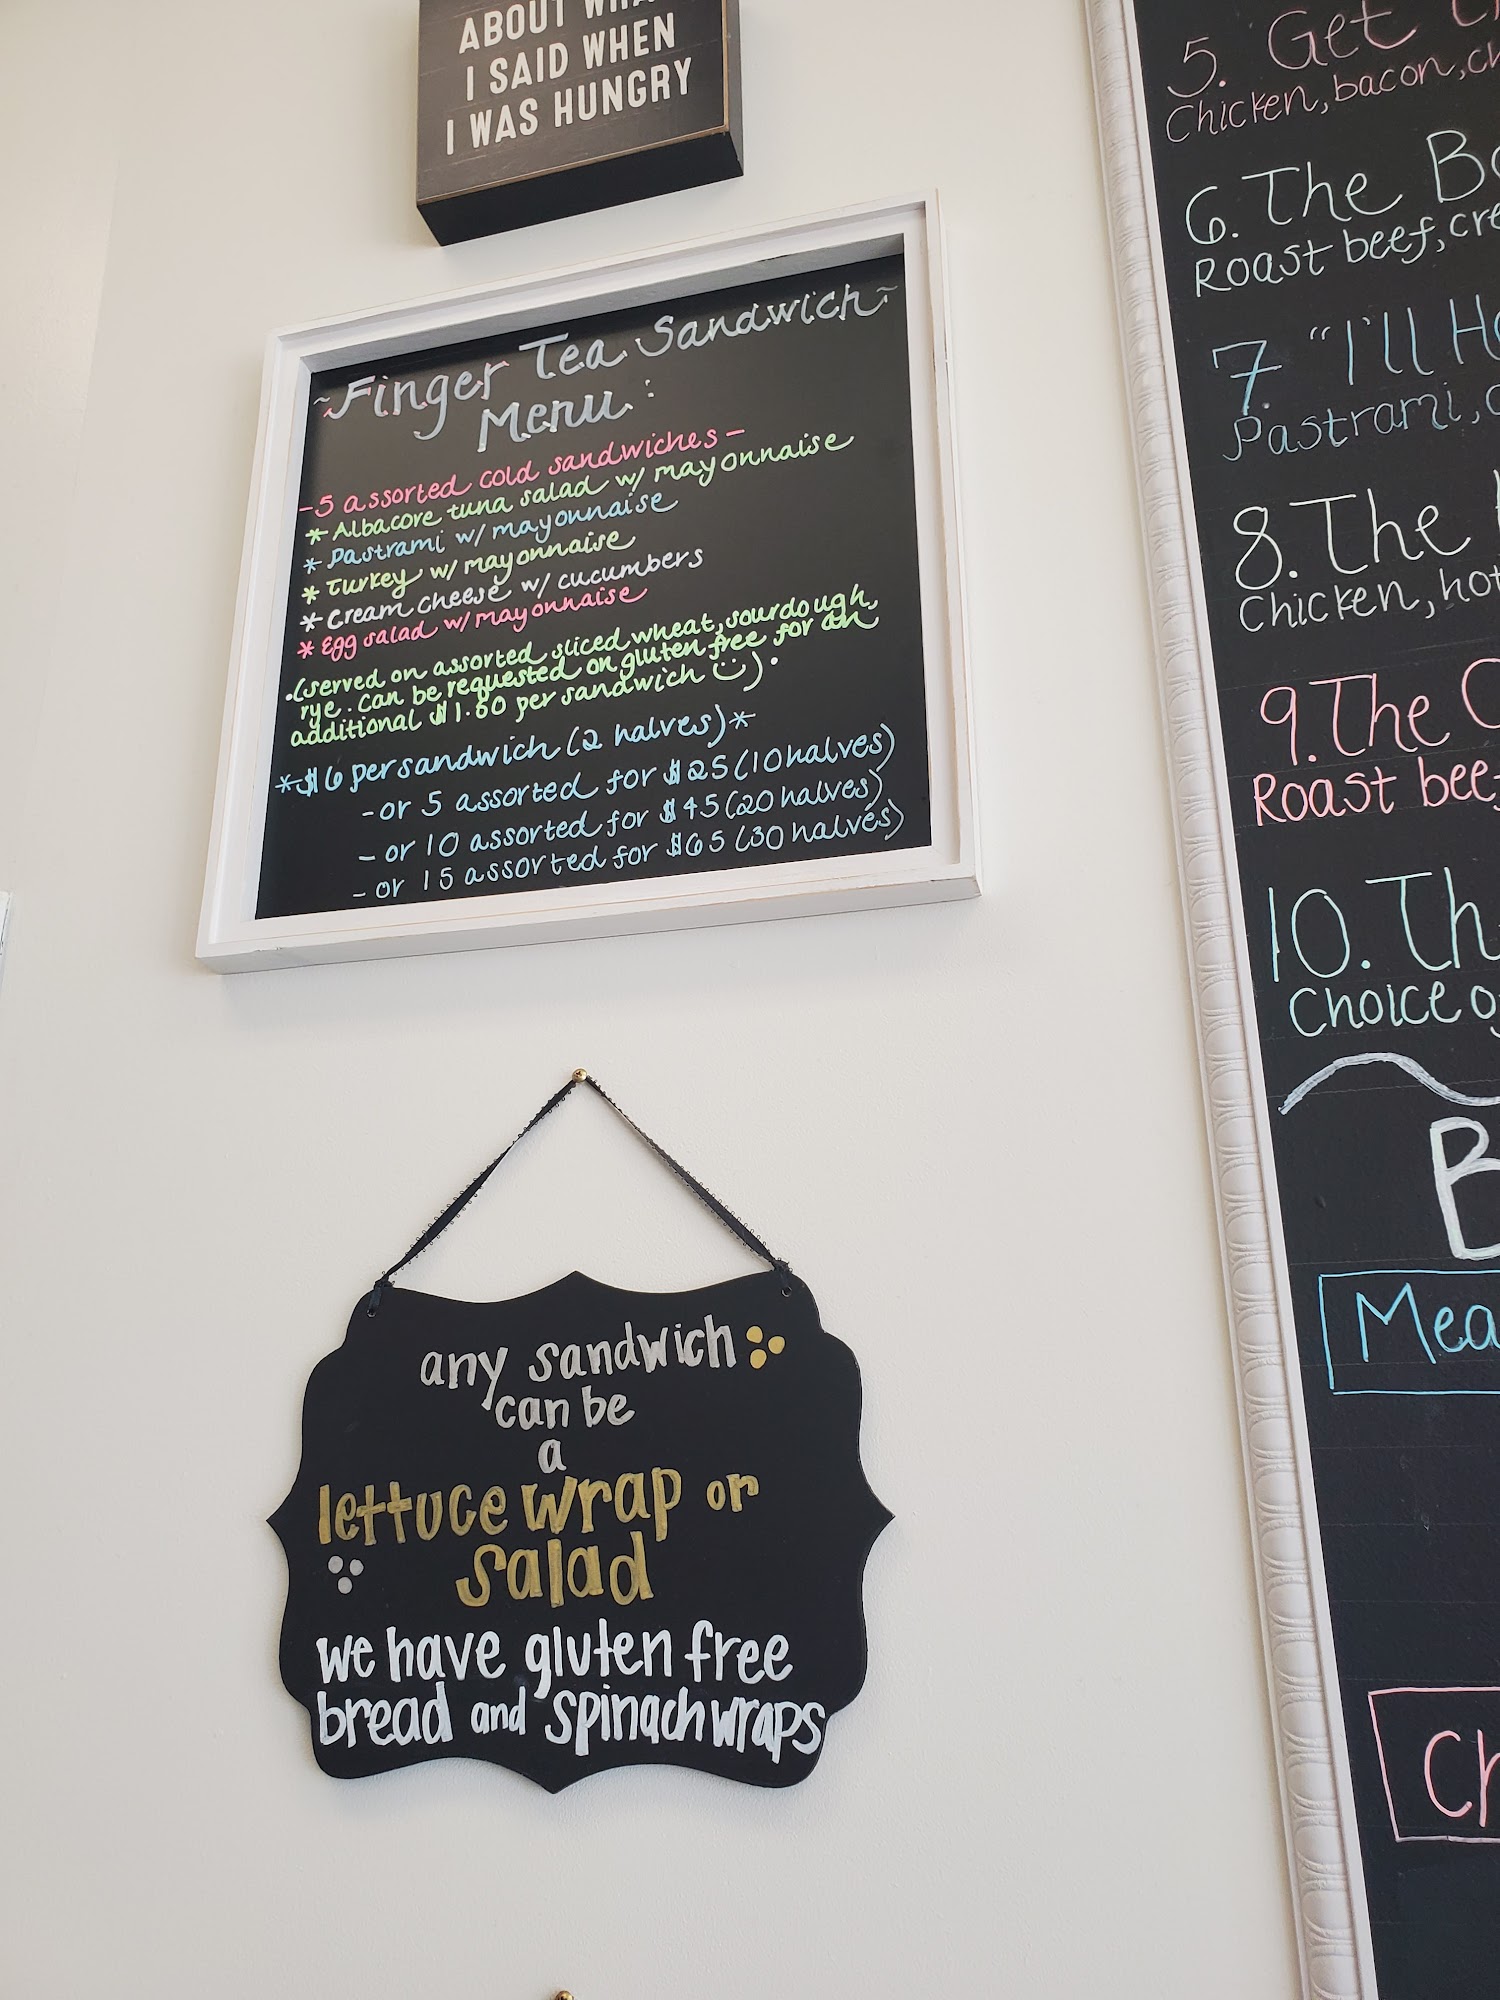 ABOUT
I SAID WHEN
I WAS HUNGRY
~Finger Tea Sandwich~
Menu:
-5 assorted cold sandwiches-
* Albacore tuna salad w/ mayonnaise
* Pastrami w/ mayonnaise
* Turkey w/ mayonnaise
* Cream cheese w/ cucumbers
* Egg salad w/ mayonnaise
•(served on assorted sliced wheat, sourdough,
rye. Can be requested on gluten free for an
additional $1.50 per sandwich ).•
*$6 per sandwich (2 halves)*
-or 5 assorted for $25 (10 halves)
- or 10 assorted for $45 (20 halves)
- or 15 assorted for $65 (30 halves)
any sandwich
can be
a
lettuce wrap or
salad
we have gluten free
bread and spinach wraps
5. Get
Chicken, bacon,
6. The
Roast beef,
7. "I'll
Pastrami,
8. The
Chicken,
9. The
Roast
10.
Choice